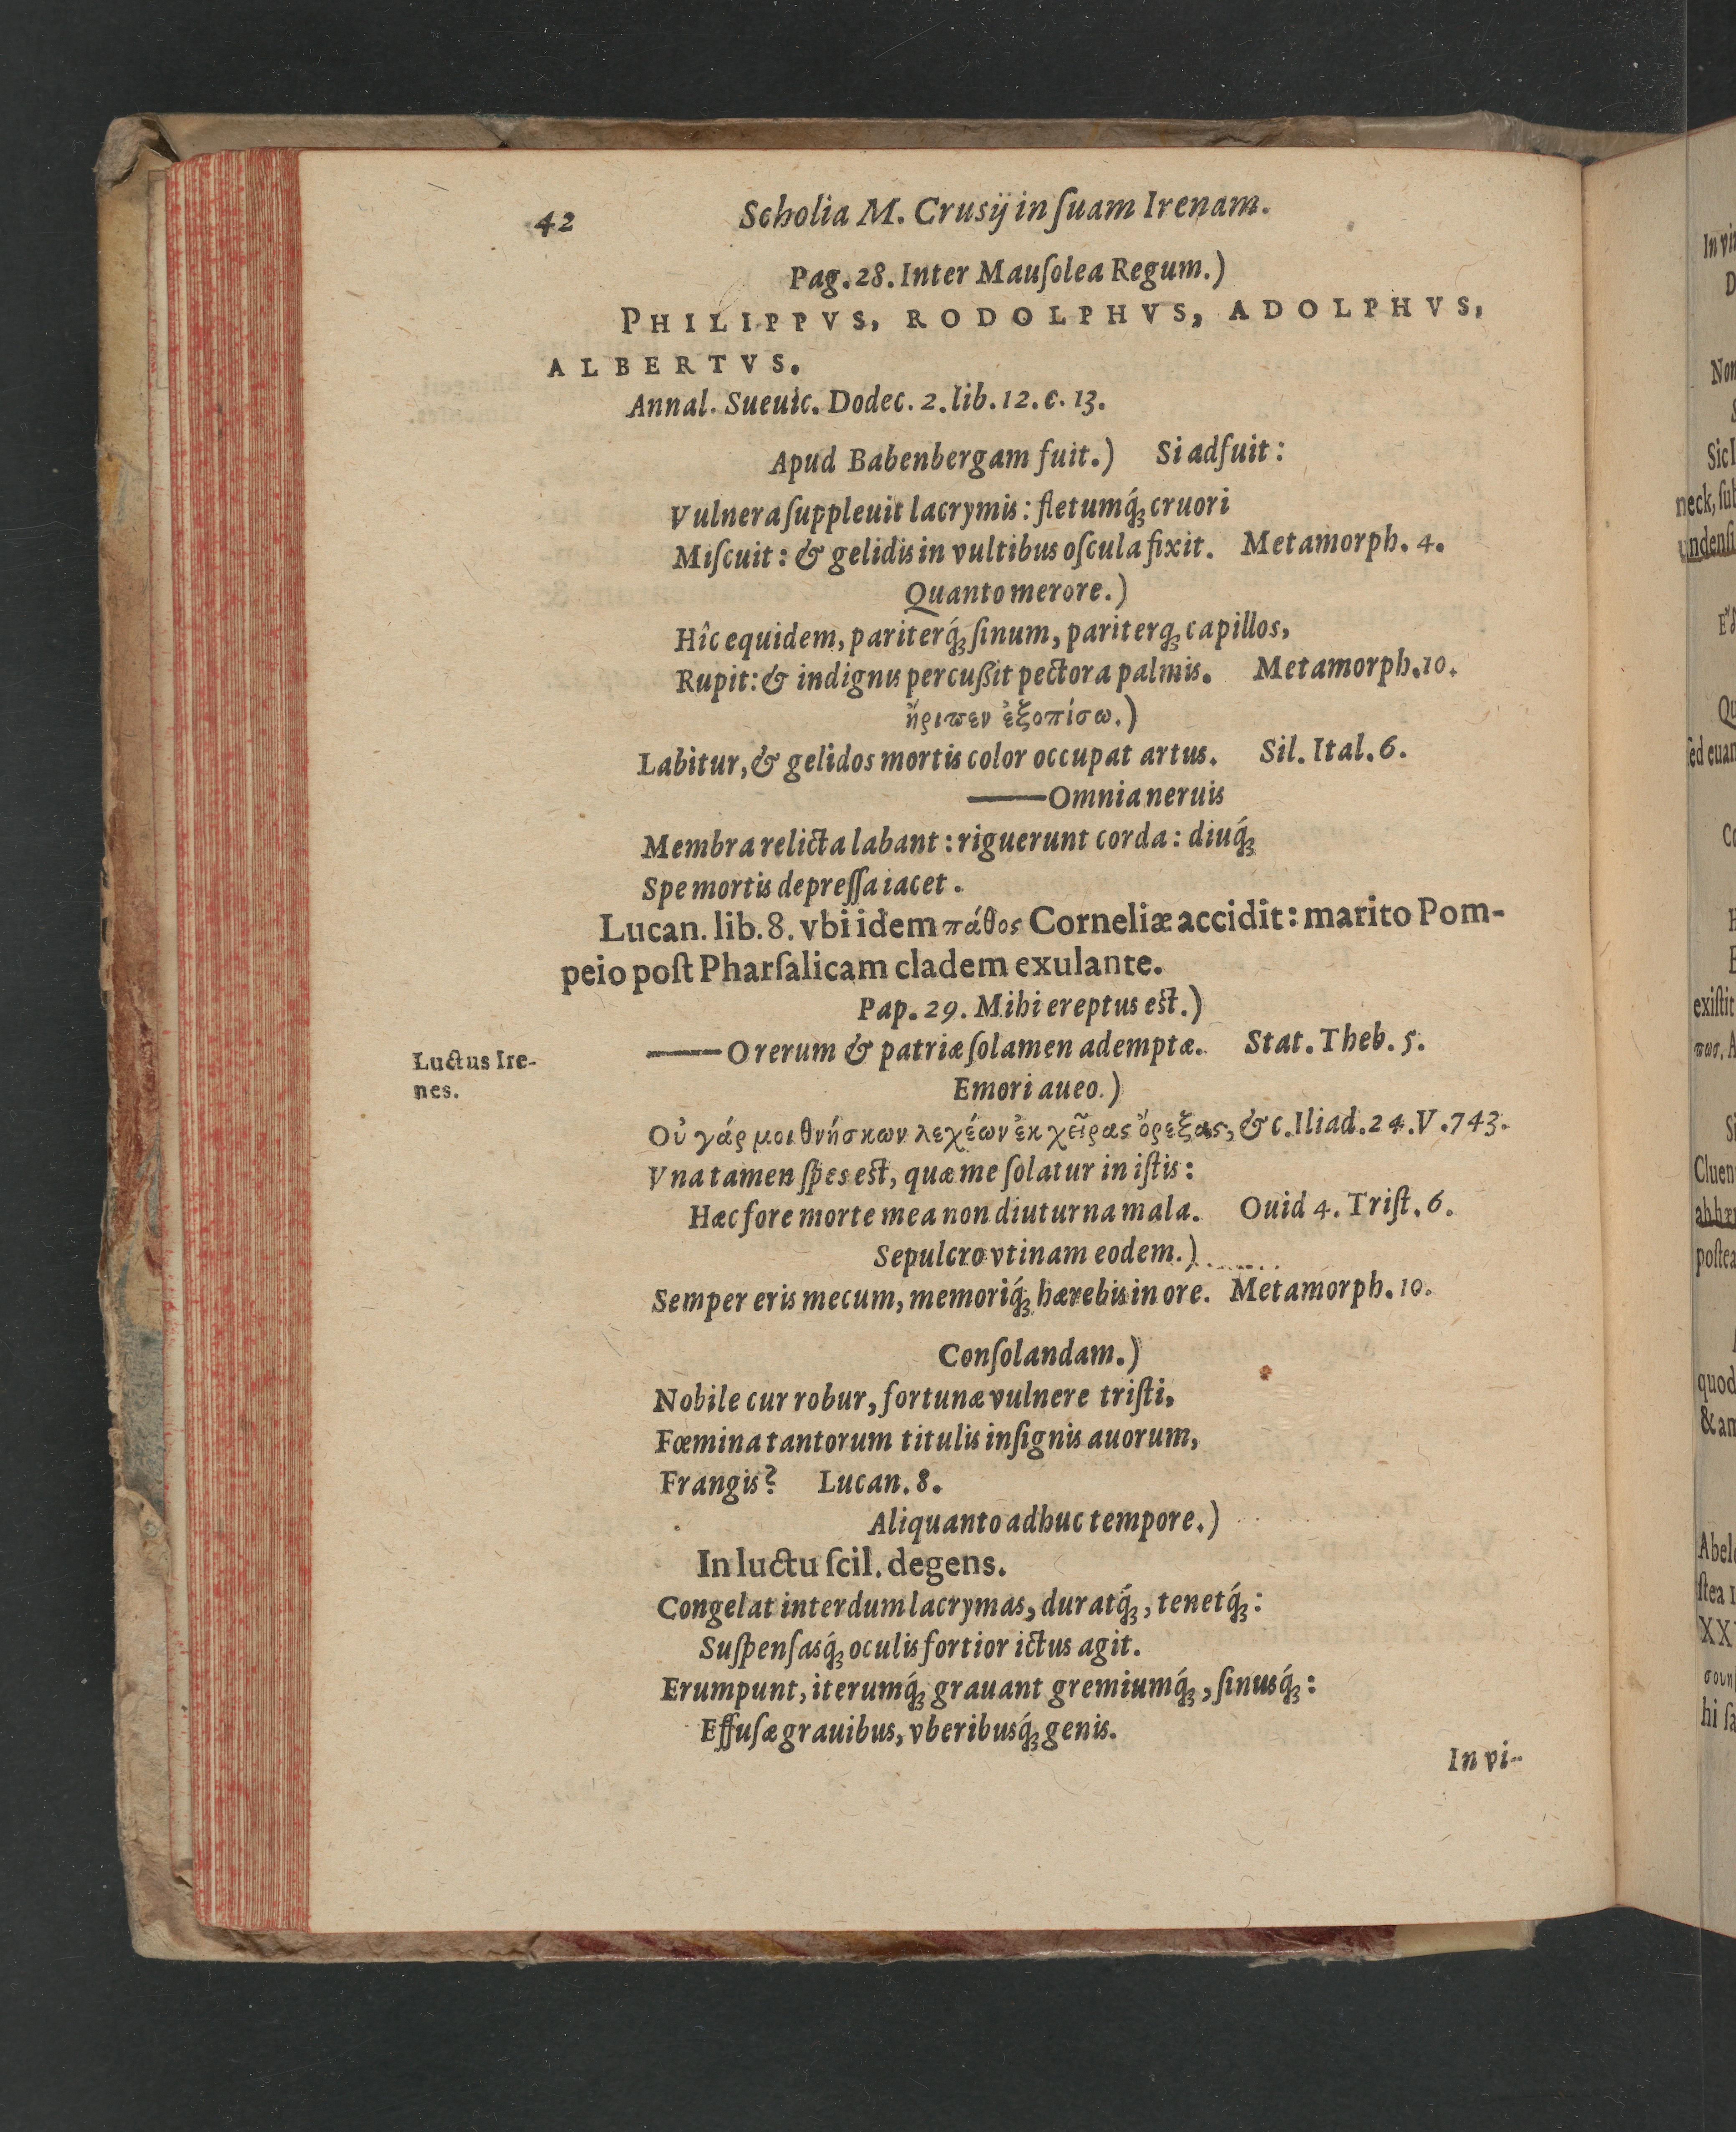 42
Scholia M. Crusij in ſuam Irenam.
Pag. 28. Inter Mauſolea Regum.)
PHILIPPVS, RODOLPHVS, ADOLPHVS,
ALBERTVS.
Annal. Sueuic. Dodec. 2. lib. 12. c. 13.
Apud Babenbergam fuit.) Si adfuit:
Vulnera ſuppleuit lacrymis: fletumq́ꝫ cruori
Miſcuit: & gelidis in vultibus oſcula fixit. Metamorph. 4.
Quanto merore.)
Hîc equidem, pariterq́ꝫ ſinum, pariterqꝫ capillos,
Rupit: & indignis percußit pectora palmis. Metamorph. 10.
ἤριπεν ἐξοπίσω.)
Labitur, & gelidos mortis color occupat artus. Sil. Ital. 6.
——Omnia neruis
Membra relicta labant: riguerunt corda: diuq́ꝫ
Spe mortis depreſſa iacet.
Lucan. lib. 8. vbi idem πάθος Corneliæ accidit: marito Pom-
peio poſt Pharſalicam cladem exulante.
Pap. 29. Mihi ereptus est.)
Luctus Ire-
nes.
——O rerum & patriæ ſolamen ademptæ. Stat. Theb. 5.
Emori aueo.)
Οὐ γάρ μοι θνήσκων λεχέων ἐκ χεῖρας ὄρεξας, & c. Iliad. 24. V. 743.
Vna tamen ſpes est, quæ me ſolatur in iſtis:
Hæc fore morte mea non diuturna mala. Ouid 4. Triſt. 6.
Sepulcro vtinam eodem.)
Semper eris mecum, memoriq́ꝫ hærebis in ore. Metamorph. 10.
Conſolandam.)
Nobile cur robur, fortunæ vulnere triſti,
Fœmina tantorum titulis inſignis auorum,
Frangis? Lucan. 8.
Aliquanto adhuc tempore.)
In luctu ſcil. degens.
Congelat interdum lacrymas, duratq́ꝫ, tenetq́ꝫ:
Suſpenſasq́ꝫ oculis fortior ictus agit.
Erumpunt, iterumq́ꝫ grauant gremiumq́ꝫ, ſinusq́ꝫ:
Effuſæ grauibus, vberibusq́ꝫ genis.
In vi-